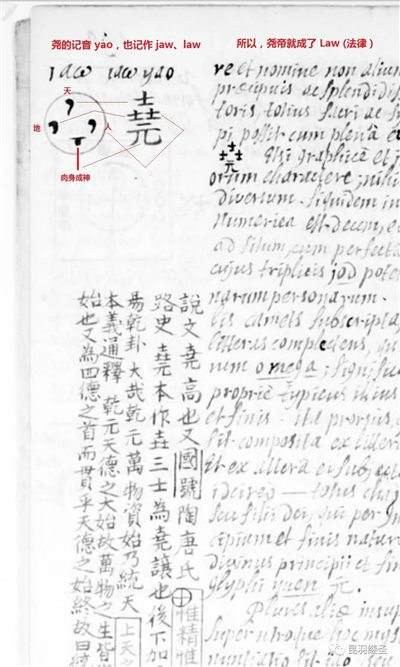 尧的记音 yao，也记作 jaw、law
所以，尧帝就成了 Law (法律)
ιαω ιαω yao
天
地
人
肉身成神
堯
re et nomine non alium
præcipuis ac splendidis
toris, totius sacri
pi possit cum plena
Etsi graphice et
ortim charactere; nihil
diversum. siquidem in
Numerica est decem, e
ad situm, cum perfecta
cujus triplicis jod poten
narum personarum.
lis camets subscripta
litteras complectens, qu
num omega; signific
proprie typicus illius
et finis. ita prorsus,
sit composita ex littera
it ex altera
idcirco — totus
seu filii dei, qui per
cipium et finis naturæ
divinus principii et fin
glyphi yuen 元.
Plures aliæ insup
super utroque hoc mys
說文堯高也又國號陶唐氏 惟精惟
路史 堯本作垚三士為堯讓也後下加
易乾卦 大哉乾元萬物資始乃統天 上天之
本義通釋 乾元天德之大始故萬物之生皆
始也又為四德之首而貫乎天德之始終故曰
昆羽繼圣